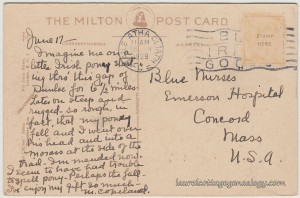 THE MILTON POST CARD
June 17 -
Imagine me on a
little Irish poney
thro' this gap of
Dunloe for 6 1/2 miles
rugged, so rough, in
fact, that my poney
fell and I went over
his head and into a
morass at the side of the
trail. I'm mended now
I seem to have had trouble
to spell poney. Perhaps the fall.
I enjoy my gift so much.
M. Copeland
ATHA CLIATH
11 AM
Stamp
HERE
Blue Nurses
Emerson Hospital
Concord
Mass
U.S.A.
laurelcottagegenealogy.com